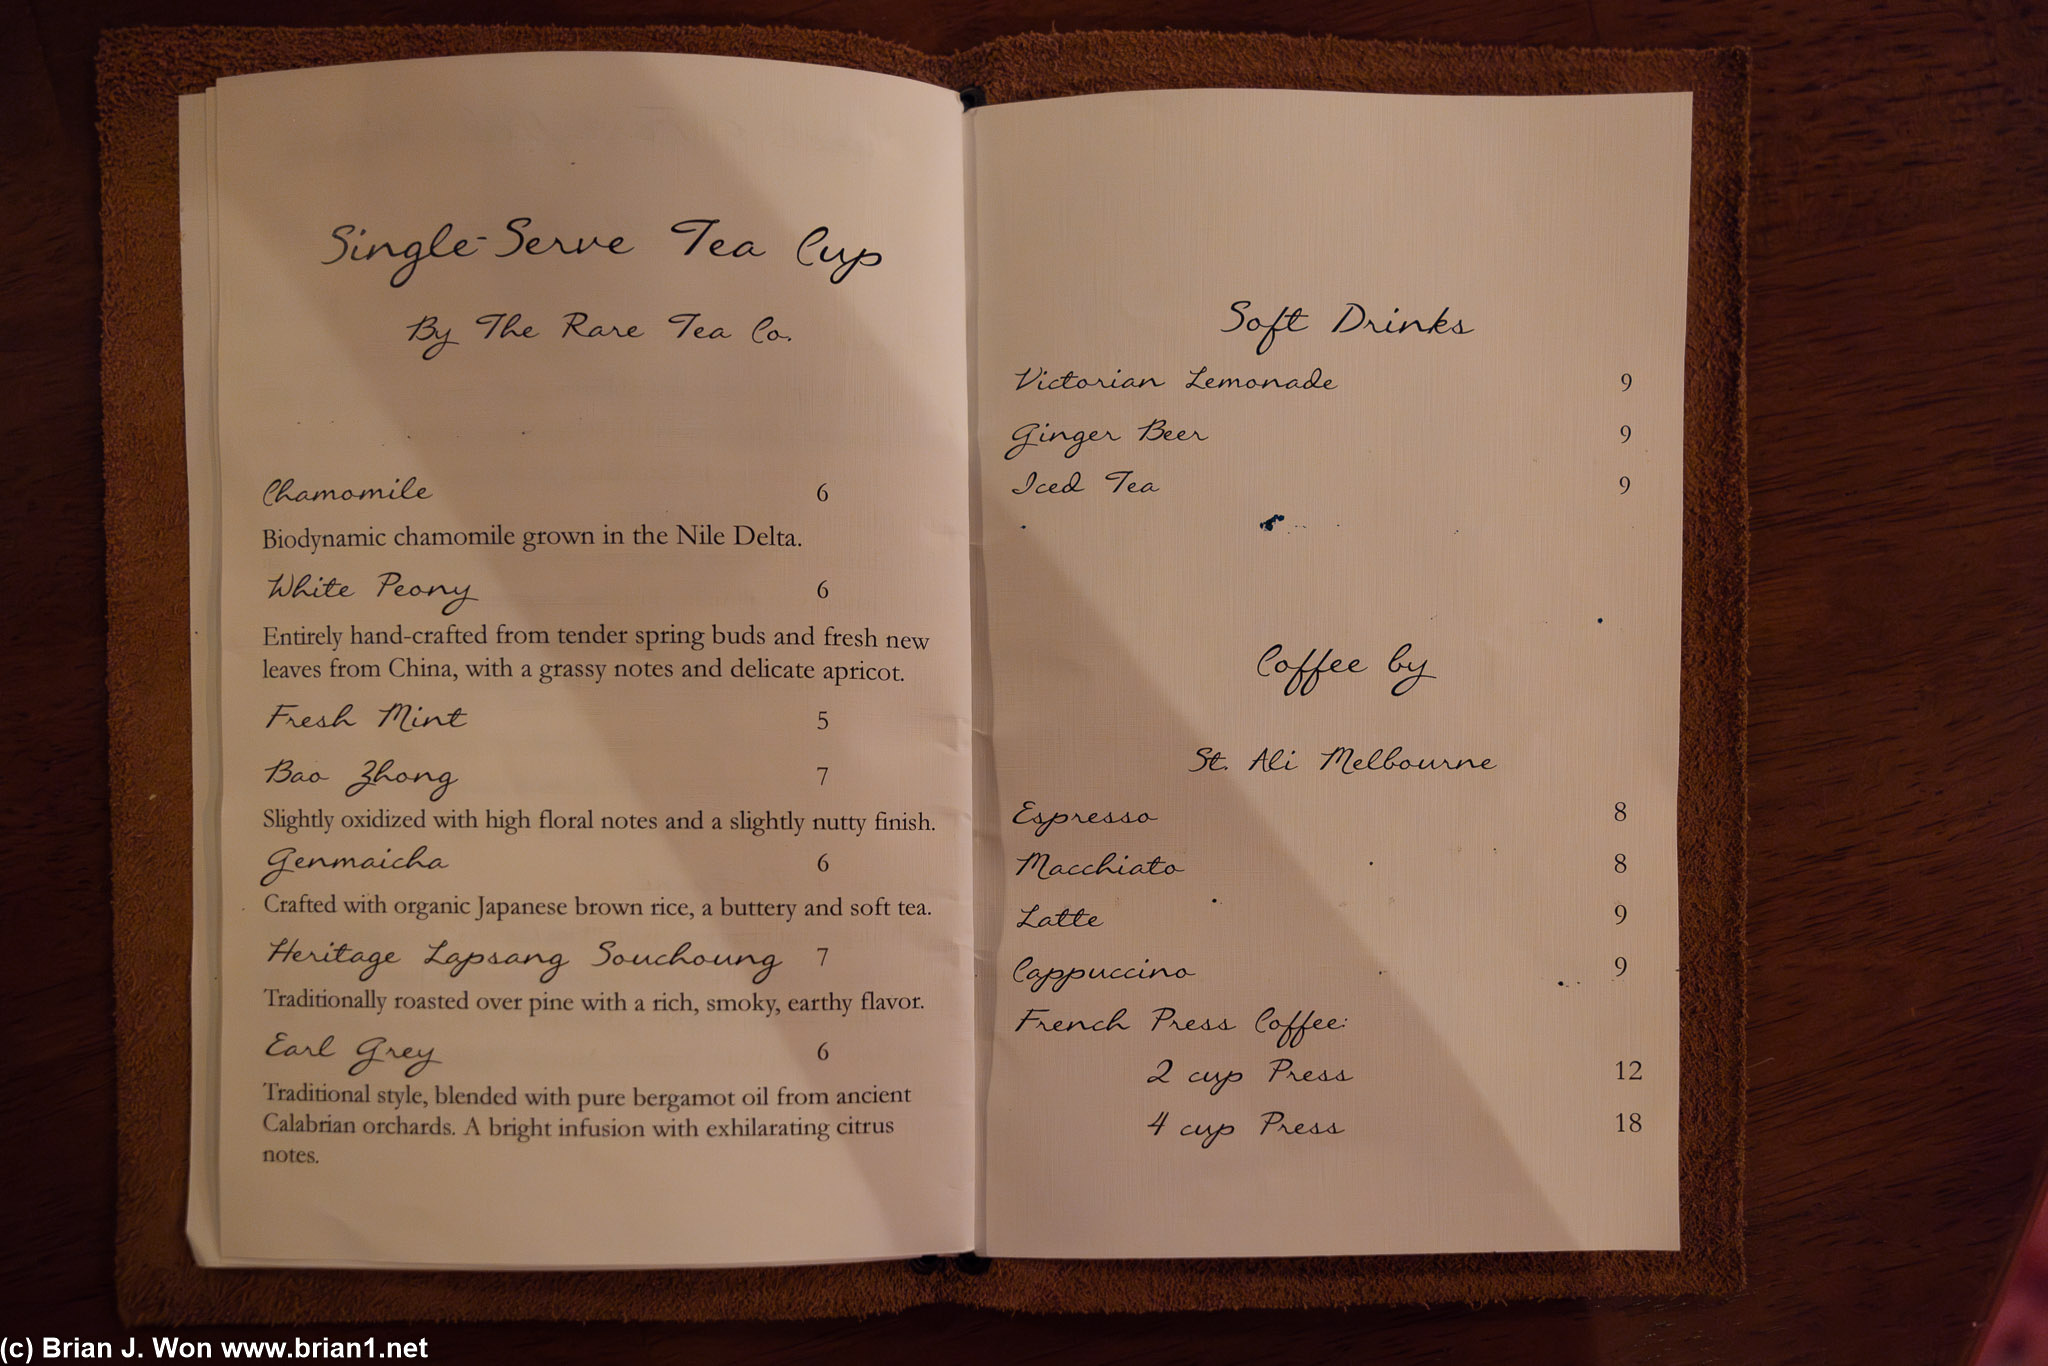 Single-Serve Tea Cup
By The Rare Tea Co.
Chamomile 6
Biodynamic chamomile grown in the Nile Delta.
White Peony 6
Entirely hand-crafted from tender spring buds and fresh new
leaves from China, with a grassy notes and delicate apricot.
Fresh Mint 5
Bao Zhong 7
Slightly oxidized with high floral notes and a slightly nutty finish.
Genmaicha 6
Crafted with organic Japanese brown rice, a buttery and soft tea.
Heritage Lapsang Souchoung 7
Traditionally roasted over pine with a rich, smoky, earthy flavor.
Earl Grey 6
Traditional style, blended with pure bergamot oil from ancient
Calabrian orchards. A bright infusion with exhilarating citrus
notes.
Soft Drinks
Victorian Lemonade 9
Ginger Beer 9
Iced Tea 9
Coffee by
St. Ali Melbourne
Espresso 8
Macchiato 8
Latte 9
Cappuccino 9
French Press Coffee:
2 cup Press 12
4 cup Press 18
(c) Brian J. Won www.brian1.net